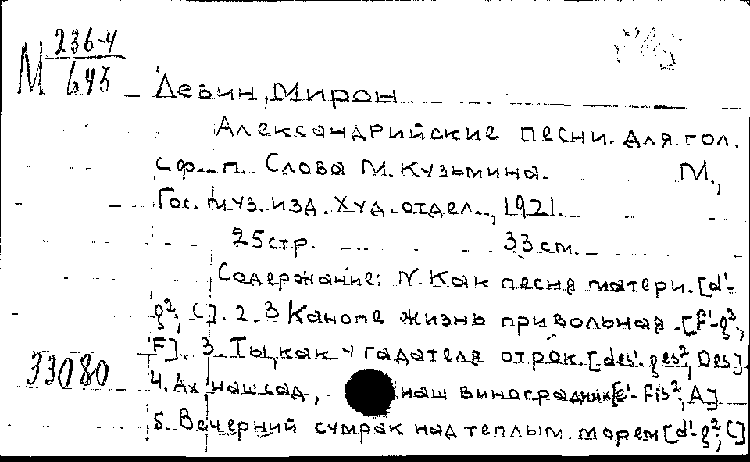 М 236-4
645
Левин, Мирон
Александрийские песни. Для гол.
с ф-п. Слова М. Кузьмина. М.,
Гос. муз. изд. Худ. отдел., 1921.
25 стр. 33 см.
Содержание: N. Как песня матери. [d'-
g², C]. 2. В Канопе жизнь привольная. [F'-g²,
F]. 3. Ты, как у гадателя отрок. [des'. ges², Des]
33080
4. Ах, наш сад, наш виноградник [e'- Fis², A]
5. Вечерний сумрак над теплым морем [d'-g², C]